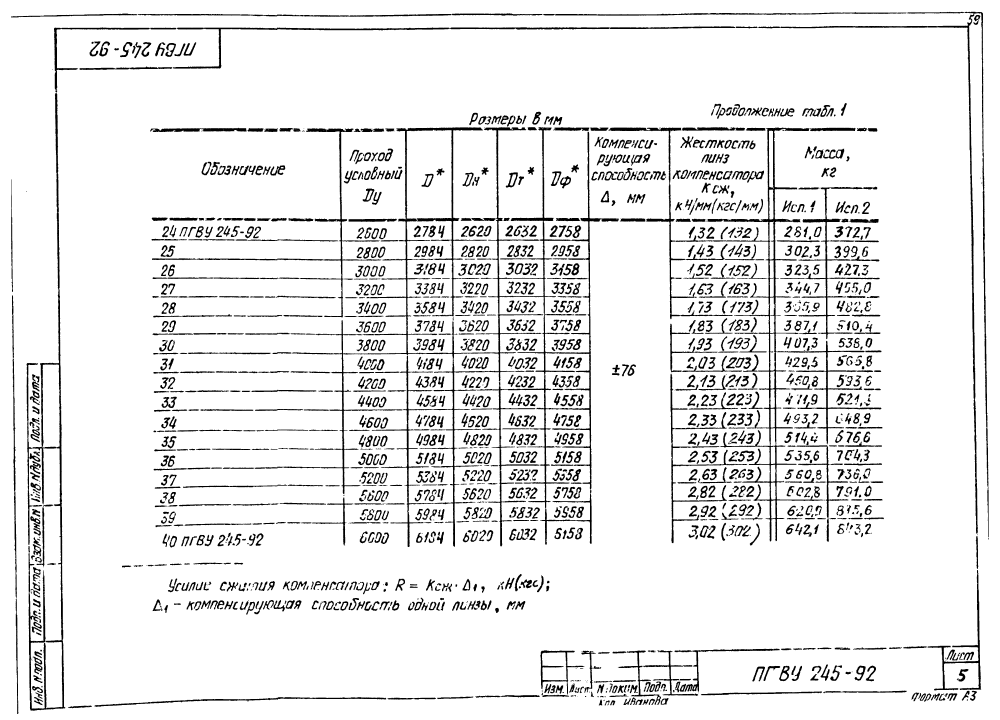 59
ПГВУ 245-92
Продолжение табл. 1
Размеры в мм
Обозначение | Проход условный Dу | D* | Dн* | Dт* | Dф* | Компенсирующая способность Δ, мм | Жесткость линз компенсатора К сж, кН/мм(кгс/мм) | Масса, кг Исп.1 | Исп.2
24 ПГВУ 245-92 | 2600 | 2784 | 2620 | 2632 | 2758 | ±76 | 1,32 (132) | 281,0 | 372,7
25 | 2800 | 2984 | 2820 | 2832 | 2958 | 1,43 (143) | 302,3 | 399,6
26 | 3000 | 3184 | 3020 | 3032 | 3158 | 1,52 (152) | 323,5 | 427,3
27 | 3200 | 3384 | 3220 | 3232 | 3358 | 1,63 (163) | 344,7 | 455,0
28 | 3400 | 3584 | 3420 | 3432 | 3558 | 1,73 (173) | 365,9 | 482,8
29 | 3600 | 3784 | 3620 | 3632 | 3758 | 1,83 (183) | 387,1 | 510,4
30 | 3800 | 3984 | 3820 | 3832 | 3958 | 1,93 (193) | 407,3 | 538,0
31 | 4000 | 4184 | 4020 | 4032 | 4158 | 2,03 (203) | 429,5 | 565,8
32 | 4200 | 4384 | 4220 | 4232 | 4358 | 2,13 (213) | 450,8 | 593,6
33 | 4400 | 4584 | 4420 | 4432 | 4558 | 2,23 (223) | 471,9
34 | 4600 | 4784 | 4620 | 4632 | 4758 | 2,33 (233) | 493,2 | 648,9
35 | 4800 | 4984 | 4820 | 4832 | 4958 | 2,43 (243) | 514,4 | 676,6
36 | 5000 | 5184 | 5020 | 5032 | 5158 | 2,53 (253) | 535,6 | 704,3
37 | 5200 | 5384 | 5220 | 5232 | 5358 | 2,63 (263) | 560,8 | 736,0
38 | 5600 | 5784 | 5620 | 5632 | 5758 | 2,82 (282) | 602,8 | 791,0
39 | 5800 | 5984 | 5820 | 5832 | 5958 | 2,92 (292)
40 ПГВУ 245-92 | 6000 | 6184 | 6020 | 6032 | 6158 | 3,02 (302) | 642,1
Усилие сжатия компенсатора: R = Ксж · Δ₁, кН(кгс);
Δ₁ - компенсирующая способность одной линзы, мм
Подп. и дата
Инв.N дубл.
Взам. инв.N
Подп. и дата
Инв. N подл.
Изм. Лист N докум. Подп. Дата
ПГВУ 245-92
Лист
5
Коп. Иванова
Формат А3